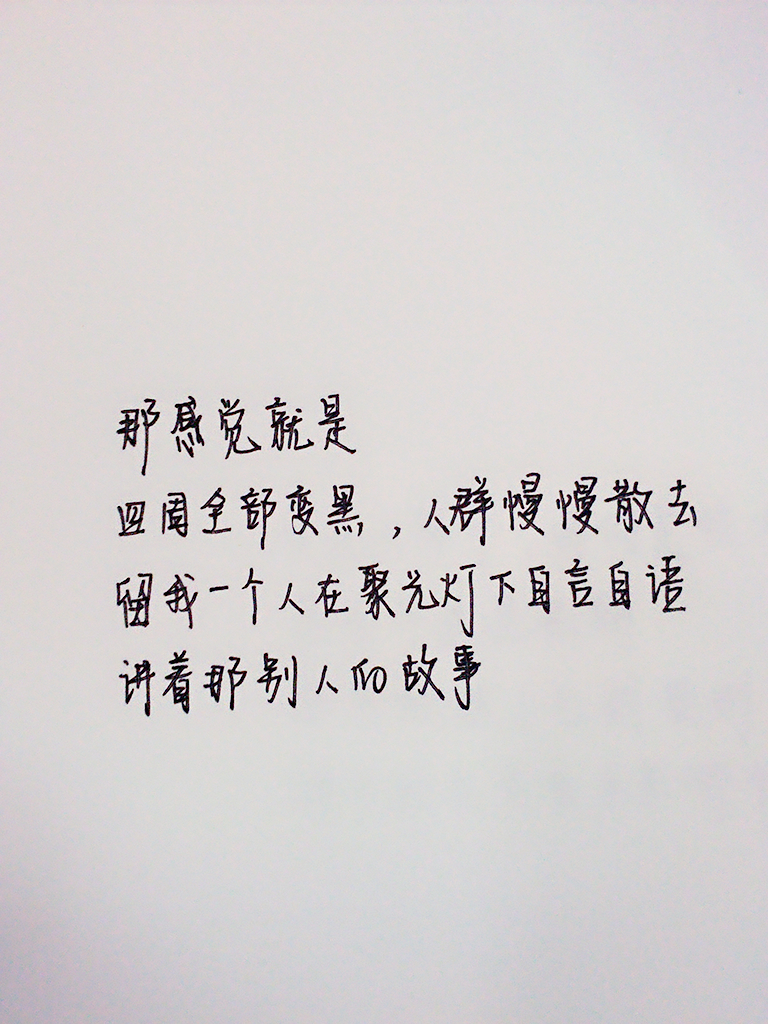 那感觉就是
四周全部变黑，人群慢慢散去
留我一个人在聚光灯下自言自语
讲着那别人的故事